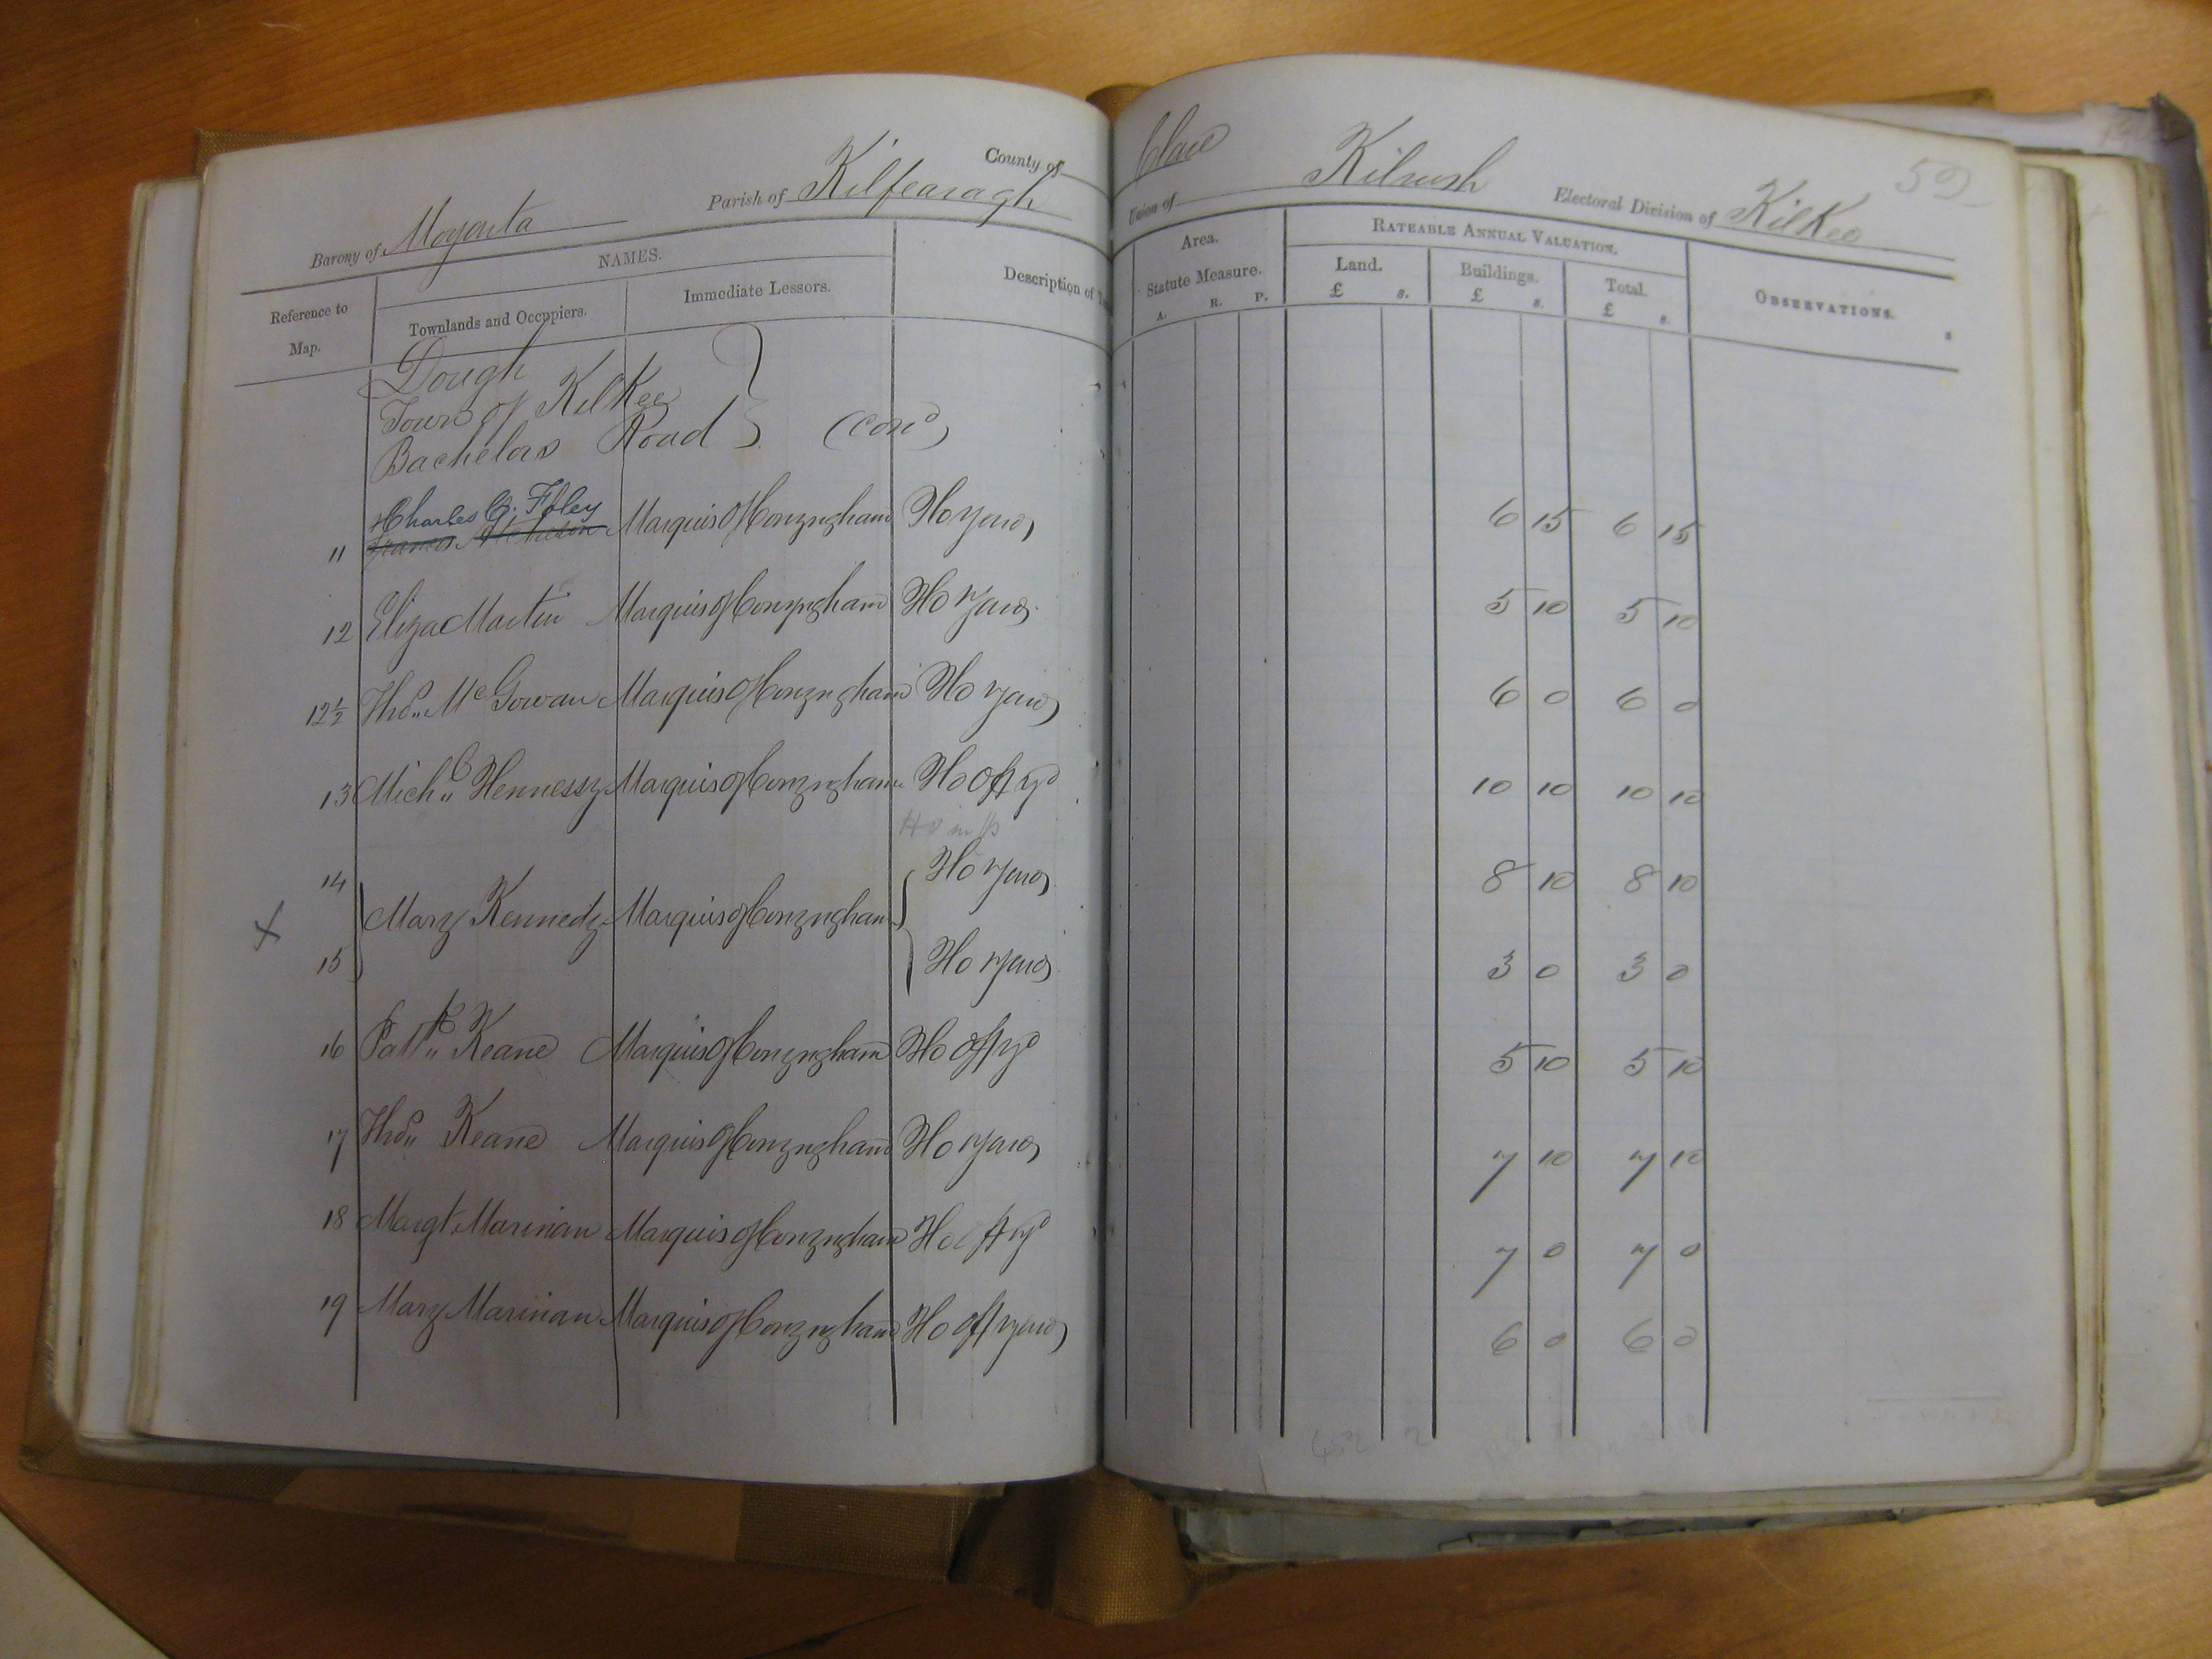 County of Clare
Barony of Moyarta Parish of Kilfearagh Union of Kilrush Electoral Division of Kilkee 52
Reference to Map. NAMES. Description of Area. RATEABLE ANNUAL VALUATION. OBSERVATIONS.
Townlands and Occupiers. Immediate Lessors. Statute Measure. Land. Buildings. Total.
A. R. P. £ s. £ s. £ s.
Dough
Town of KilKee
Bachelors Road } (cond)
Charles G. Foley
11 Francis Marquis of Conyngham Ho yard 6 15 6 15
12 Eliza Martin Marquis of Conyngham Ho yard 5 10 5 10
12½ Thos. McGowan Marquis of Conyngham Ho yard 6 0 6 0
13 Michl. Hennessy Marquis of Conyngham Ho off yd 10 10 10 10
14 Ho yard 8 10 8 10
x Mary Kennedy Marquis of Conyngham
15 Ho yard 3 0 3 0
16 Patk. Keane Marquis of Conyngham Ho off yd 5 10 5 10
17 Thos. Keane Marquis of Conyngham Ho yard 7 10 7 10
18 Margt. Marinan Marquis of Conyngham Ho off yd 7 0 7 0
19 Mary Marinan Marquis of Conyngham Ho off yard 6 0 6 0